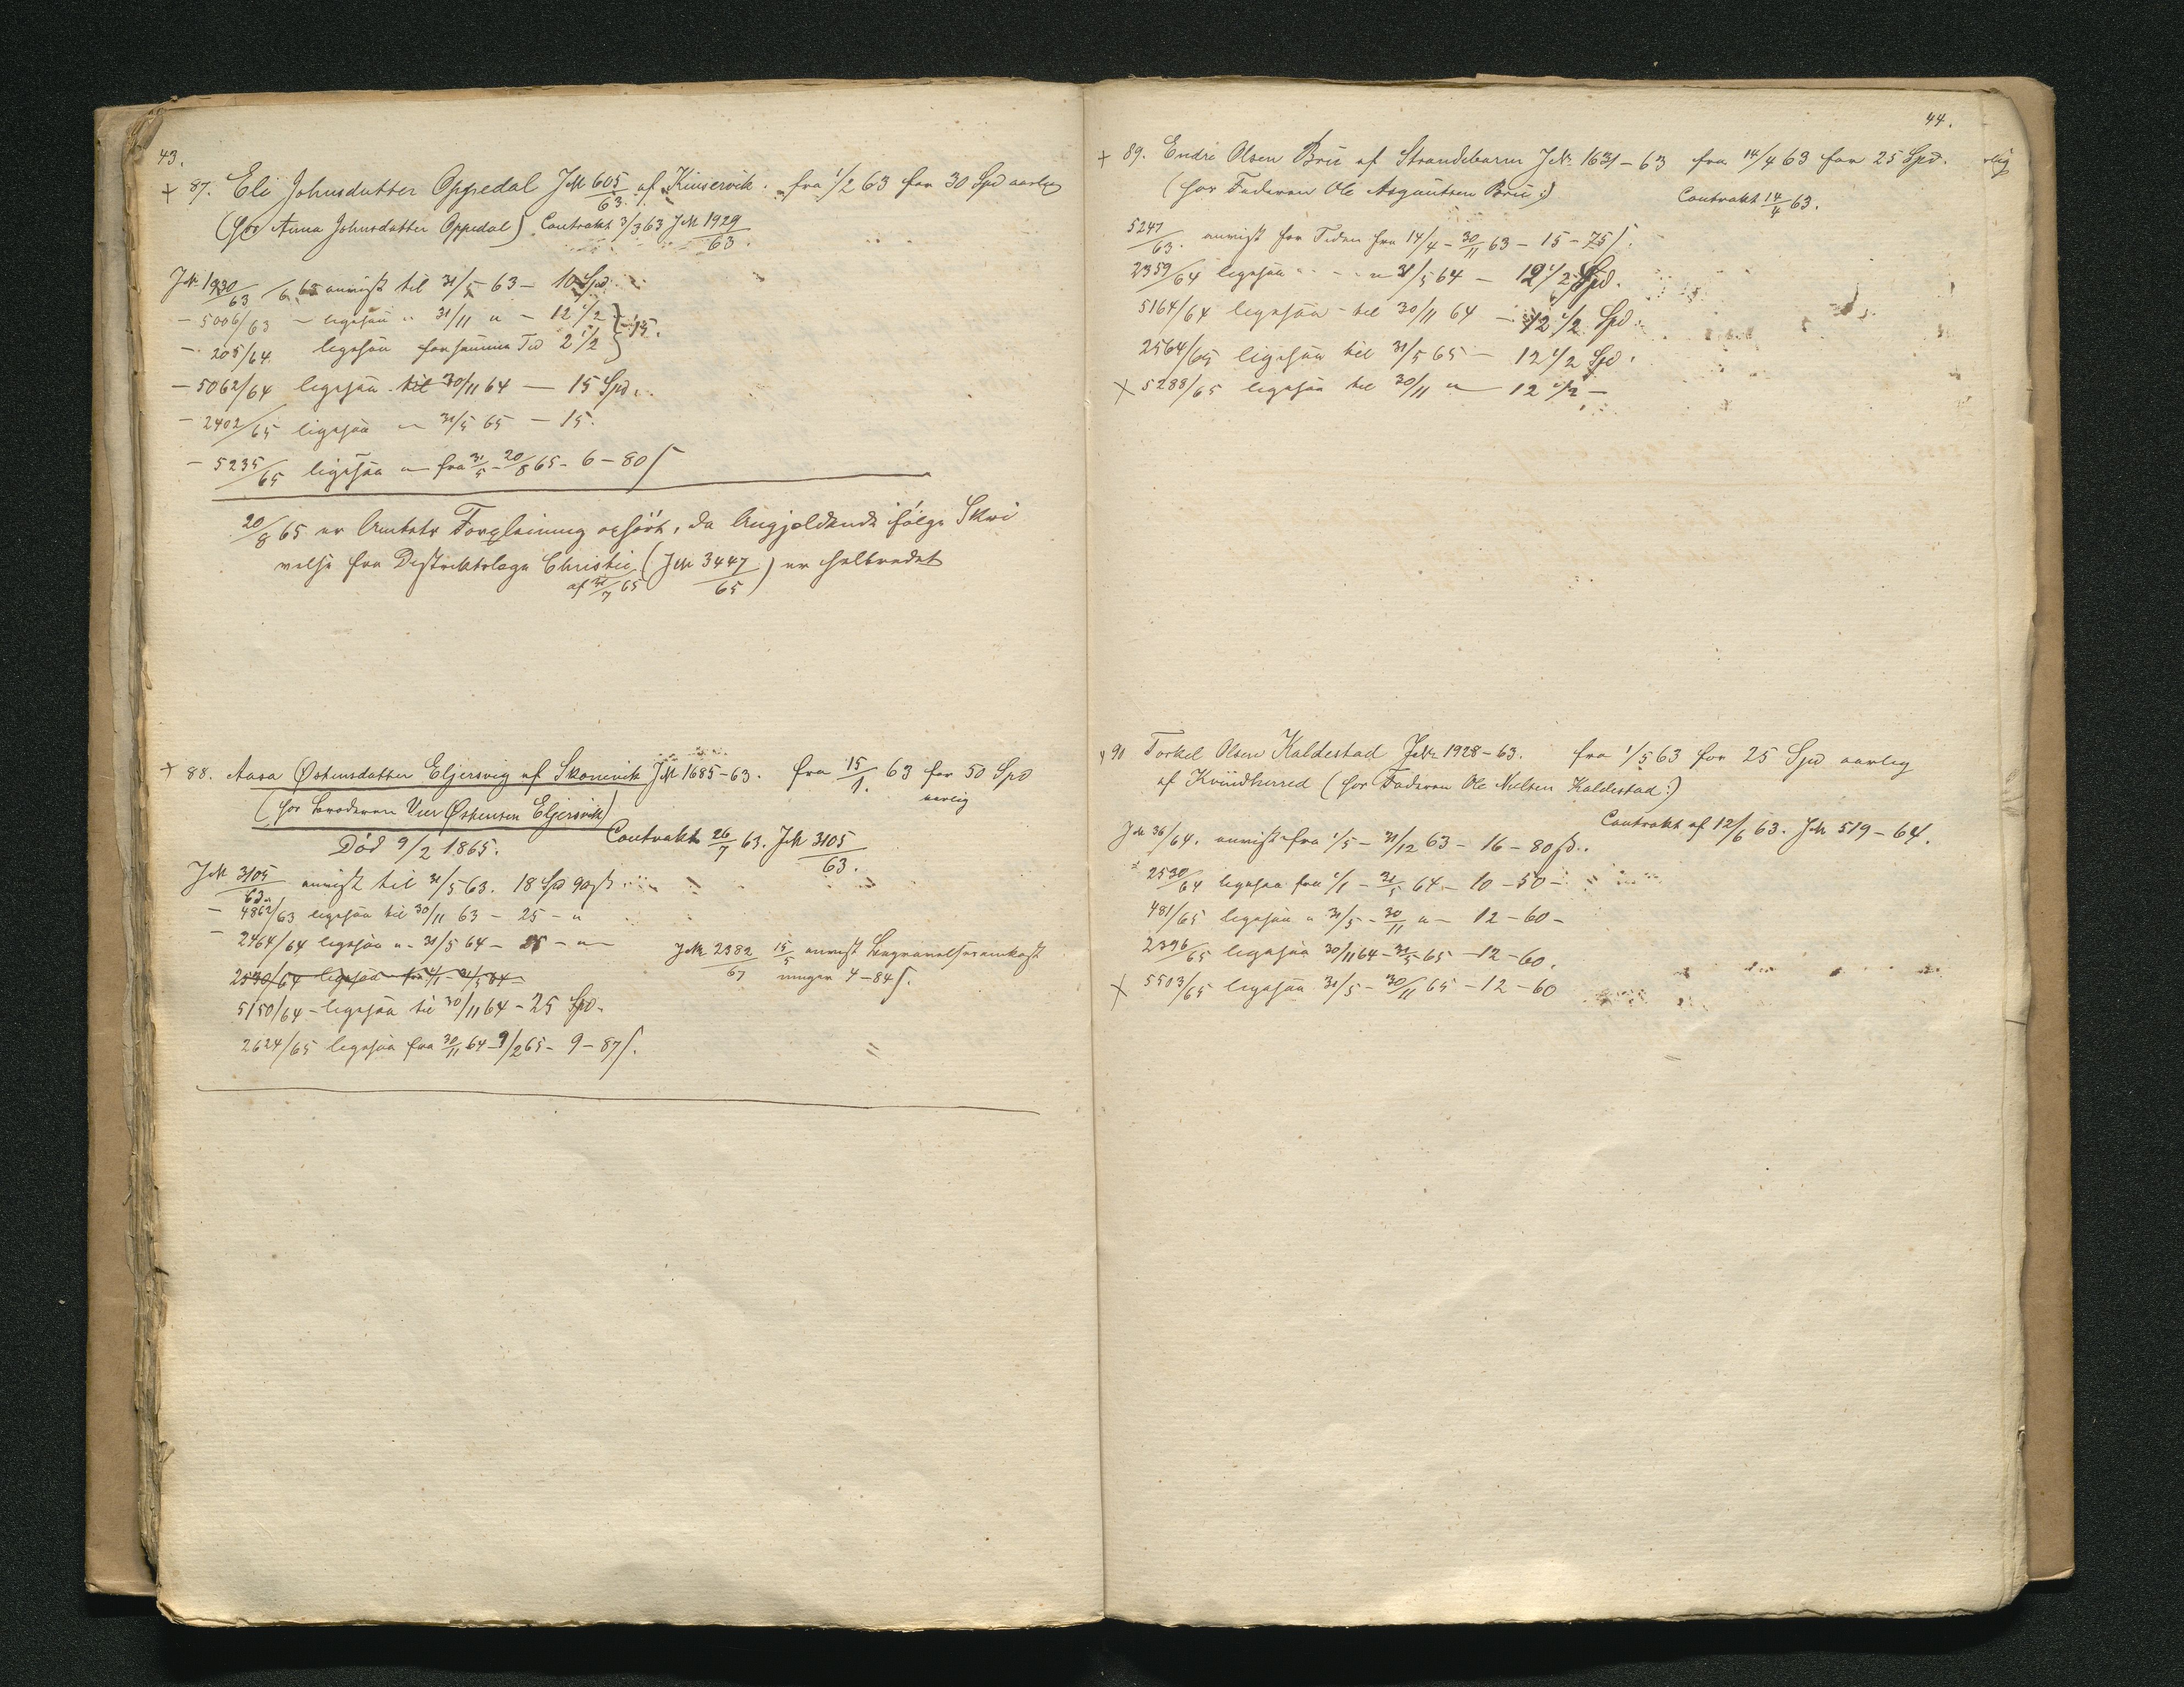 43.
+ 87. Eli Johnsdatter Oppedal J№ 605/63 af Kinservik. fra 1/2 63 for 30 Spd aarlig
(hos Anna Johnsdatter Oppedal) Contrakt 3/3 63 J№ 1929/63.
J№ 1930/63 anvist til 31/5 63 – 10 Spd.
– 5006/63 – ligesaa " 31/11 " – 12 1/2 } 15.
– 205/64 ligesaa for samme Tid 2 1/2
– 5062/64 ligesaa til 30/11 64 – 15 Spd.
– 2402/65 ligesaa – 31/5 65 – 15.
– 5235/65 ligesaa – fra 31/5 – 20/8 65 – 6 – 80 ſ
20/8 65 er Amtets Forpleining ophört, da Angjeldende ifölge Skri
velse fra Distriktslæge Christie (J№ 3447/65) er helbredet
af 31/7 65
+ 88. Aasa Østensdatter Eljersvig af Skonevik J№ 1685–63. fra 15/1. 63 for 50 Spd
aarlig
(hos Broderen Østensen Eljersvik)
Död 9/2 1865. Contrakt 26/7 63. J№ 3105/63.
J№ 3105/63 anvist til 31/5 63. 18 Spd 90 ſ
– 4862/63 ligesaa til 30/11 63 – 25 – "
– 2464/64 ligesaa " 31/5 64 – 25 – "
J№ 2382/67 15/5 anvist Begravelsesomkost
ninger 4 – 84 ſ.
2530/64 ligesaa fra 1/1 – 31/5 64 –
5150/64 – ligesaa til 30/11 64 – 25 Spd.
2624/65 ligesaa fra 30/11 64 – 9/2 65 – 9 – 87 ſ.
44.
+ 89. Endre Olsen Brue af Strandebarm J№ 1631 – 63 fra 14/4 63 for 25 Spd.
(hos Faderen Ole Asgautsen Brue:) Contrakt 14/4 63.
5247/63. anvist for Tiden fra 14/4 – 30/11 63 – 15 – 75 ſ.
2359/64 ligesaa – – " 31/5 64 – 12 1/2 Spd.
5164/64 ligesaa – til 30/11 64 – 12 1/2 Spd.
2564/65 ligesaa til 31/5 65 – 12 1/2 Spd.
+ 5288/65 ligesaa til 30/11 " 12 1/2 –
+ 90 Torkel Olsen Kaldestad J№ 1928–63. fra 1/5 63 for 25 Spd aarlig
af Kvindherred (hos Faderen Ole Nielsen Kaldestad:)
Contrakt af 12/6 63. J№ 519 – 64.
J№ 36/64. anvist fra 1/5 – 31/12 63 – 16 – 80 ſ.
2530/64 ligesaa fra 1/1 – 31/5 64 – 10 – 50 –
481/65 ligesaa " 31/5 – 30/11 " – 12 – 60 –
2396/65 ligesaa 30/11 64 – 31/5 65 – 12 – 60.
+ 5503/65 ligesaa 31/5 – 30/11 65 – 12 – 60